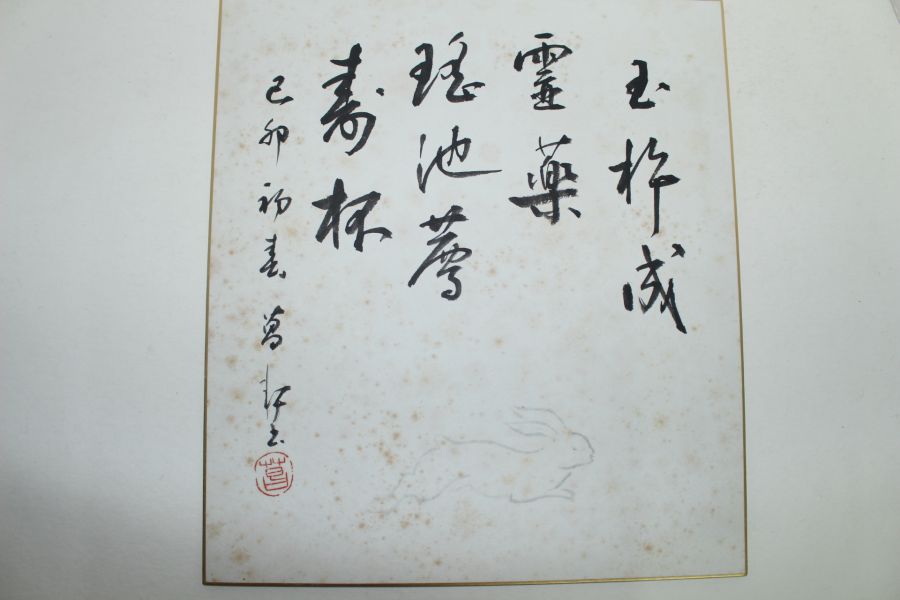 玉杵成
靈藥
瑤池薦
壽杯
己卯初春 書